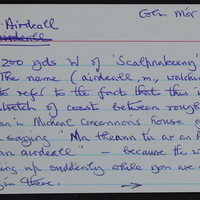 Glen Mór
Airdeall
airdeall
200 yds W of 'Scalpnabeeny'
The name (airdeall, m, watch
to refer to the fact that this
stretch of coast between rough
in Micheal Concannon's house
a saying "Ma theann tú ar an
an airdeall" – because the w
ing up suddenly while you are
in there. →